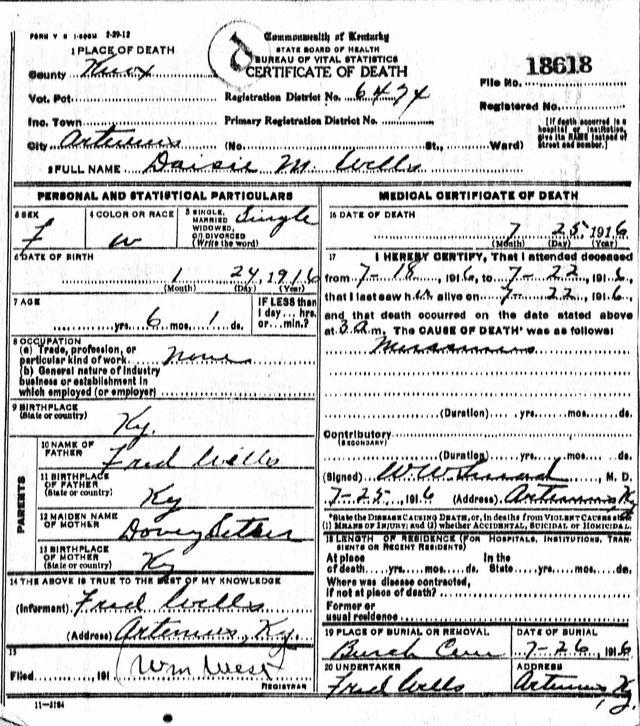 FORM V S 1-500M 2-29-12
Commonwealth of Kentucky
STATE BOARD OF HEALTH
BUREAU OF VITAL STATISTICS
CERTIFICATE OF DEATH
1 PLACE OF DEATH
County Knox
File No. 18618
Vot. Pct.
Registration District No. 6474
Registered No.
Inc. Town
Primary Registration District No.
[If death occurred in a hospital or institution, give its NAME instead of street and number.]
City Artemus (No. St., Ward)
2 FULL NAME Daisie M. Wells
PERSONAL AND STATISTICAL PARTICULARS
3 SEX F
4 COLOR OR RACE W
5 SINGLE, MARRIED WIDOWED, OR DIVORCED (Write the word) Single
6 DATE OF BIRTH
1 24, 1916
(Month) (Day) (Year)
7 AGE
yrs. 6 mos. 1 ds.
IF LESS than 1 day... hrs. or... min.?
8 OCCUPATION
(a) Trade, profession, or particular kind of work. none
(b) General nature of industry
business or establishment in
which employed (or employer)
9 BIRTHPLACE
(State or country) Ky.
PARENTS
10 NAME OF FATHER Fred Wells
11 BIRTHPLACE OF FATHER (State or country) Ky
12 MAIDEN NAME OF MOTHER Dovey
13 BIRTHPLACE OF MOTHER (State or country) Ky
14 THE ABOVE IS TRUE TO THE BEST OF MY KNOWLEDGE
(Informent) Fred Wells
(Address) Artemus, Ky.
15
Filed, 191 Wm West
REGISTRAR
11-3184
MEDICAL CERTIFICATE OF DEATH
16 DATE OF DEATH
7 25 1916
(Month) (Day) (Year)
17 I HEREBY CERTIFY, That I attended deceased
from 7-18, 1916, to 7-22, 1916,
that I last saw her alive on 7-22, 1916,
and that death occurred on the date stated above
at 3 a m. The CAUSE OF DEATH* was as follows:
(Duration) yrs. mos. ds.
Contributory
(SECONDARY)
(Duration) yrs. mos. ds.
(Signed) W.W., M. D.
7-25, 1916 (Address) Artemus, Ky
*State the DISEASE CAUSING DEATH, or, in deaths from VIOLENT CAUSES state
(1) MEANS OF INJURY; and (2) whether ACCIDENTAL, SUICIDAL or HOMICIDAL.
18 LENGTH OF RESIDENCE (FOR HOSPITALS, INSTITUTIONS, TRANSIENTS OR RECENT RESIDENTS)
At place of death yrs. mos. ds.
In the State yrs. mos. ds.
Where was disease contracted,
if not at place of death?
Former or
usual residence
19 PLACE OF BURIAL OR REMOVAL
Burch
DATE OF BURIAL
7-26, 1916
20 UNDERTAKER
Fred Wells
ADDRESS
Artemus, Ky.